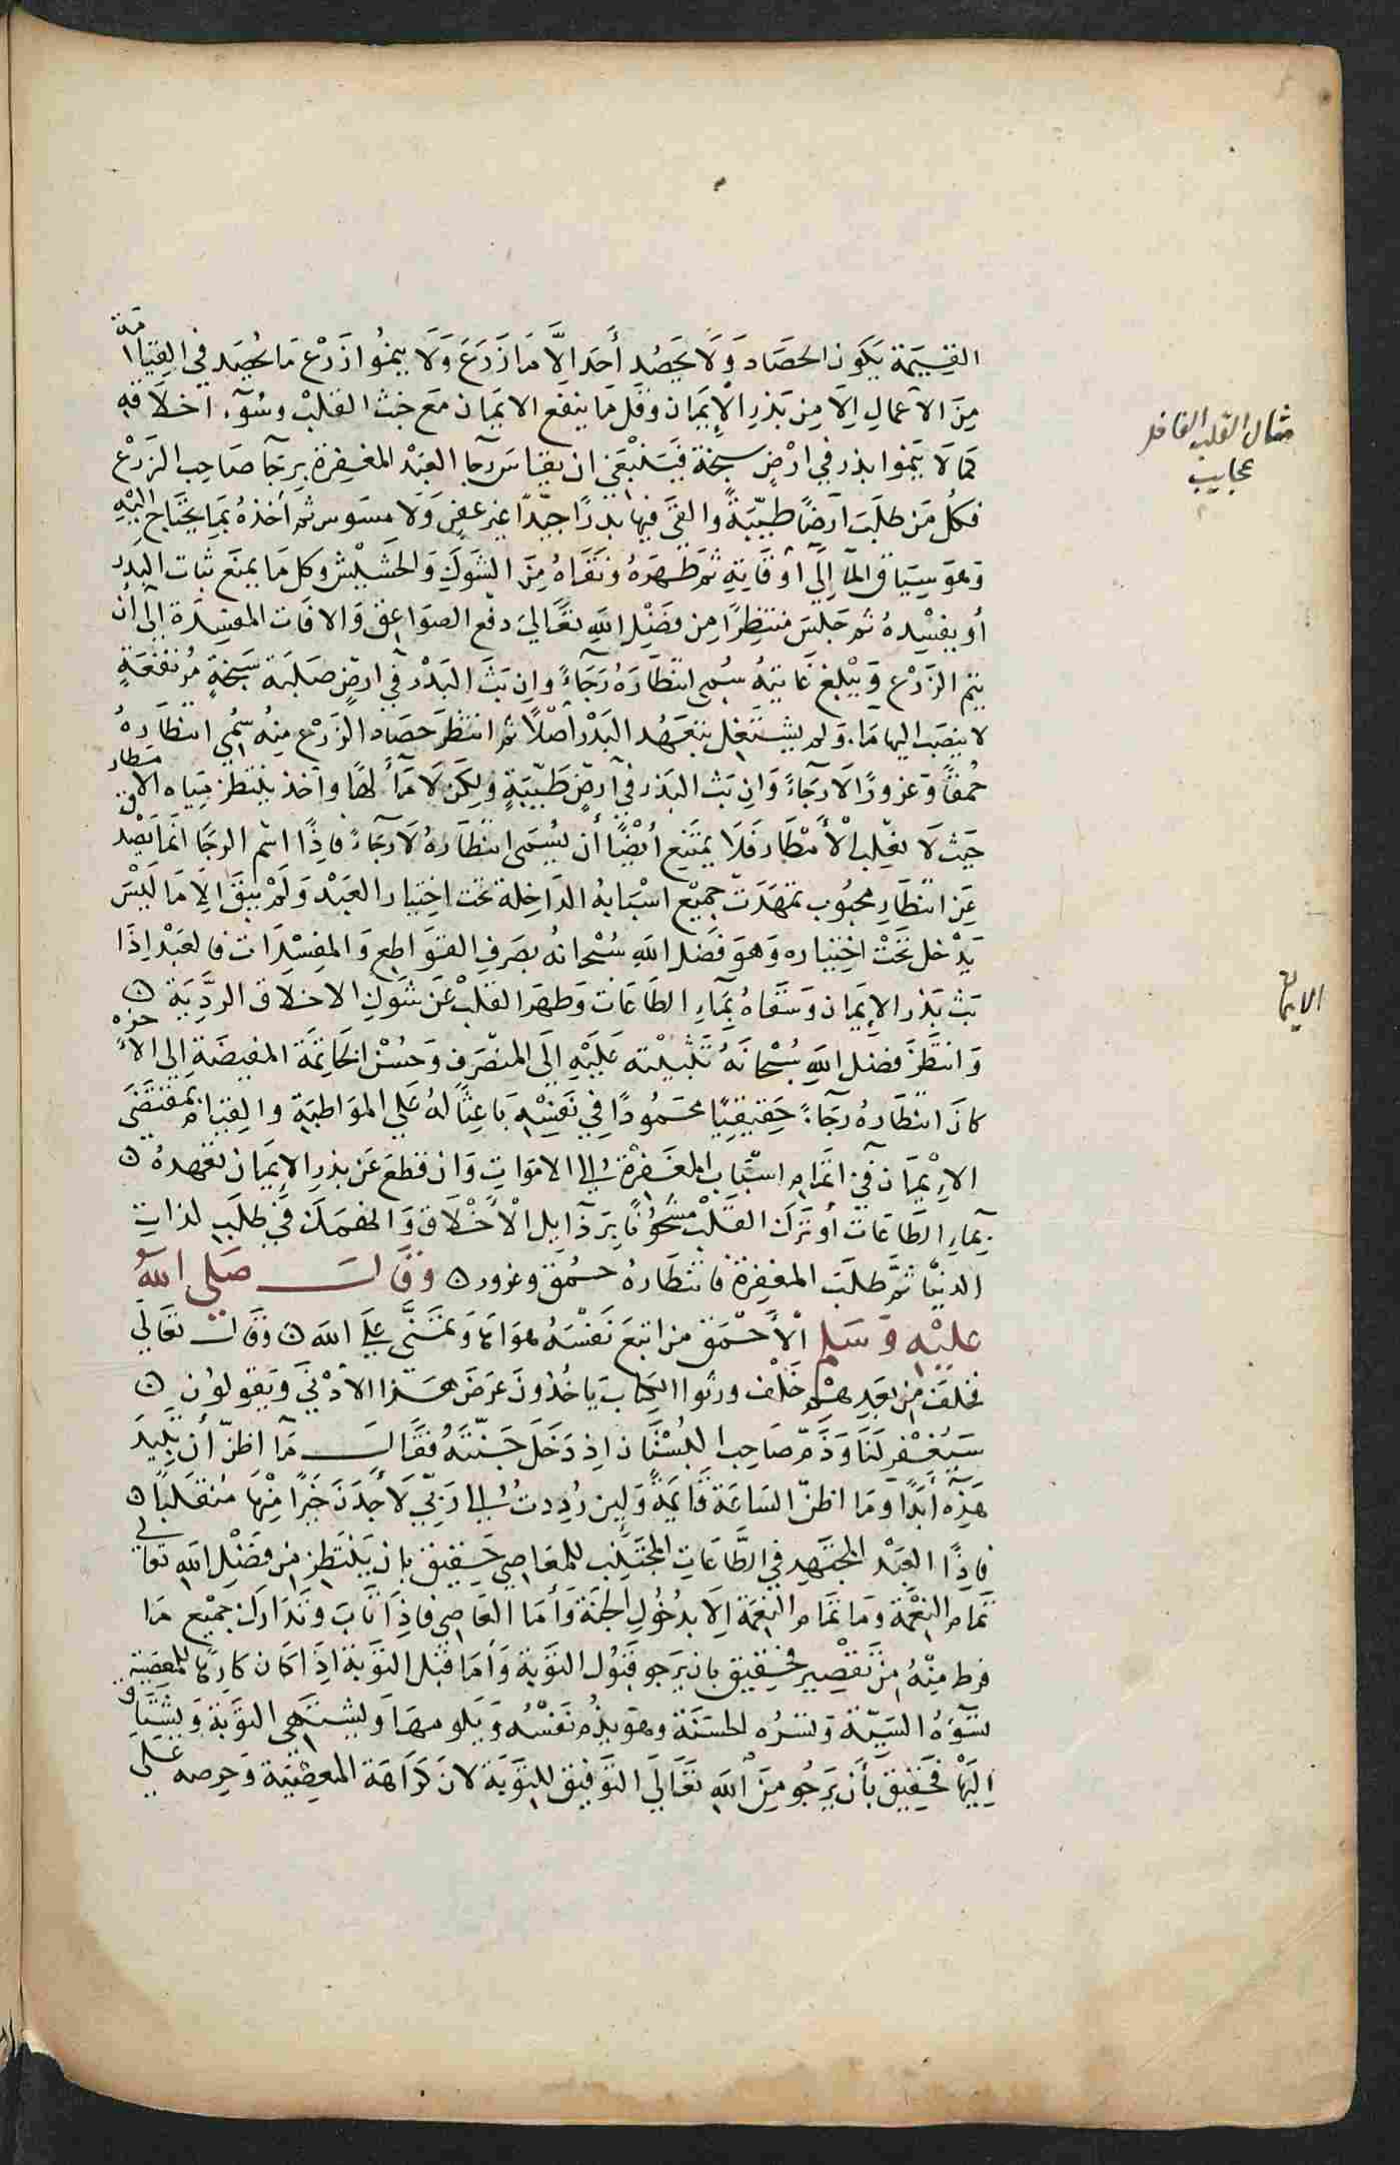 القيمة يكون الحصاد ولا يحصد أحد الا ما زرع ولا ينموا زرع ما يحصد في القيامة
من الاعمال الا من بذر الإيمان وقل ما ينفع الايمان مع خبث القلب وسوء اخلاقه
كما لا ينموا بذر في ارض سبخة فينبغى ان يقاس رجا العبد المغفرة برجآ صاحب الزرع
فكل من طلب ارضا طيبة والقى فيها بذرًا جيدًا غير عفن ولا مسوس ثم أخذه بما يحتاج اليه
وهو سياق المآ إلى أوقاته ثم طهره ونقاه من الشوك والحشيش وكل ما يمنع نبات البذر
أو يفسده ثم جلس منتظرًا من فضل الله تعالى دفع الصواعق والافات المفسدة الى أن
يتم الزرع ويبلغ غايته سمى انتظاره رجآءً وان بث البذر في ارض صلبة سبخة مرتفعة
لا ينصب اليها ما. ولم يشتغل بتعهد البذر أصلًا ثم انتظر حصاد الزرع منه سمي انتظاره
حمقًا وغرورًا لا رجآءً وان بث البذر في أرض طيبة ولكن لا مآ لها وأخذ ينتظر مياه الامطار
حيث لا تغلب الأمطار فلا يمتنع أيضًا أن يسمى انتظاره لا رجآءً فاذًا اسم الرجا انما يصد
عن انتظار محبوب تمهدت جميع اسبابه الداخلة تحت اختيار العبد ولم يبق الا ما ليس
يدخل تحت اختياره وهو فضل الله سبحانه بصرف القواطع والمفسدات فالعبد إذا
بث بذر الإيمان وسقاه بمآء الطاعات وطهر القلب عن شوك الاخلاق الردية
وانتظر فضل الله سبحانه تثبيته عليه الى المنصرف وحسن الخاتمة المفيضة إلى الأخره
كان انتظاره رجآءً حقيقيًا محمودًا في نفسه باعثا له علي المواظبة والقيام بمقتضى
الإيمان في اتمام اسباب المغفرة الي الاموات وان قطع عن بذر الإيمان تعهده
بمآء الطاعات أو ترك القلب مشحونًا برذآيل الأخلاق وانهمك في طلب لذات
الدنيا ثم طلب المغفرة فانتظاره حمق وغرور وقال صلى الله
عليه وسلم الأحمق من اتبع نفسه هواها وتمنى علي الله وقال تعالي
فخلف من بعدهم خلف ورثوا الكتاب ياخذون عرض هذا الأدني ويقولون
سيغفر لنا وذم صاحب البستان اذ دخل جنته فقال مآ اظن أن تبيد
هذه أبدًا وما اظن الساعة قايمة ولين رددت الي ربي لأجدن خيرًا منها منقلبًا
فاذًا العبد المجتهد في الطاعات المجتنب للمعاصي حقيق بان ينتظر من فضل الله تعالى
تمام النعمة وما تمام النعمة الا بدخول الجنة وأما العاصي فاذا تاب وتدارك جميع ما
فرط منه من تقصير فحقيق بان يرجو قبول التوبة وأما قبل التوبة اذا كان كارهًا للمعصية
تسوءه السيئة وتسره الحسنة وهو يذم نفسه ويلومها ويشتهي التوبة ويشتاق
اليها فحقيق بأن يرجو من الله تعالي التوفيق للتوبة لان كراهة المعصية وحرصه علي
مثال القلب الغافل
عجايب
الايمان